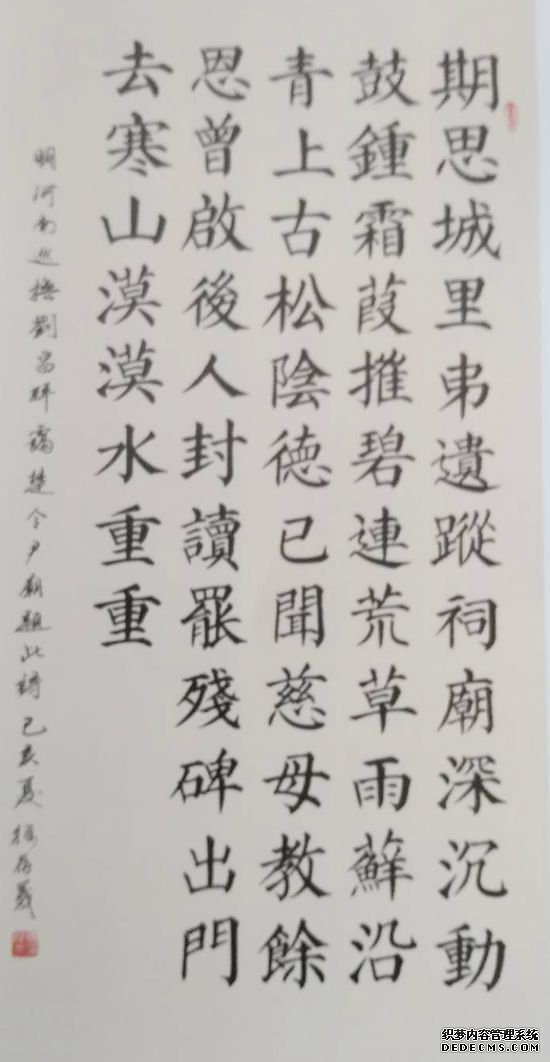 期思城里弔遺蹤祠廟深沉動
鼓鍾霜葭摧碧連荒草雨蘚沿
青上古松陰德已聞慈母教餘
恩曾啟後人封讀罷殘碑出門
去寒山漠漠水重重
明河南巡撫劉昌拜謁楚令尹廟題此詩己亥夏
织梦内容管理系统
DEDECMS.COM